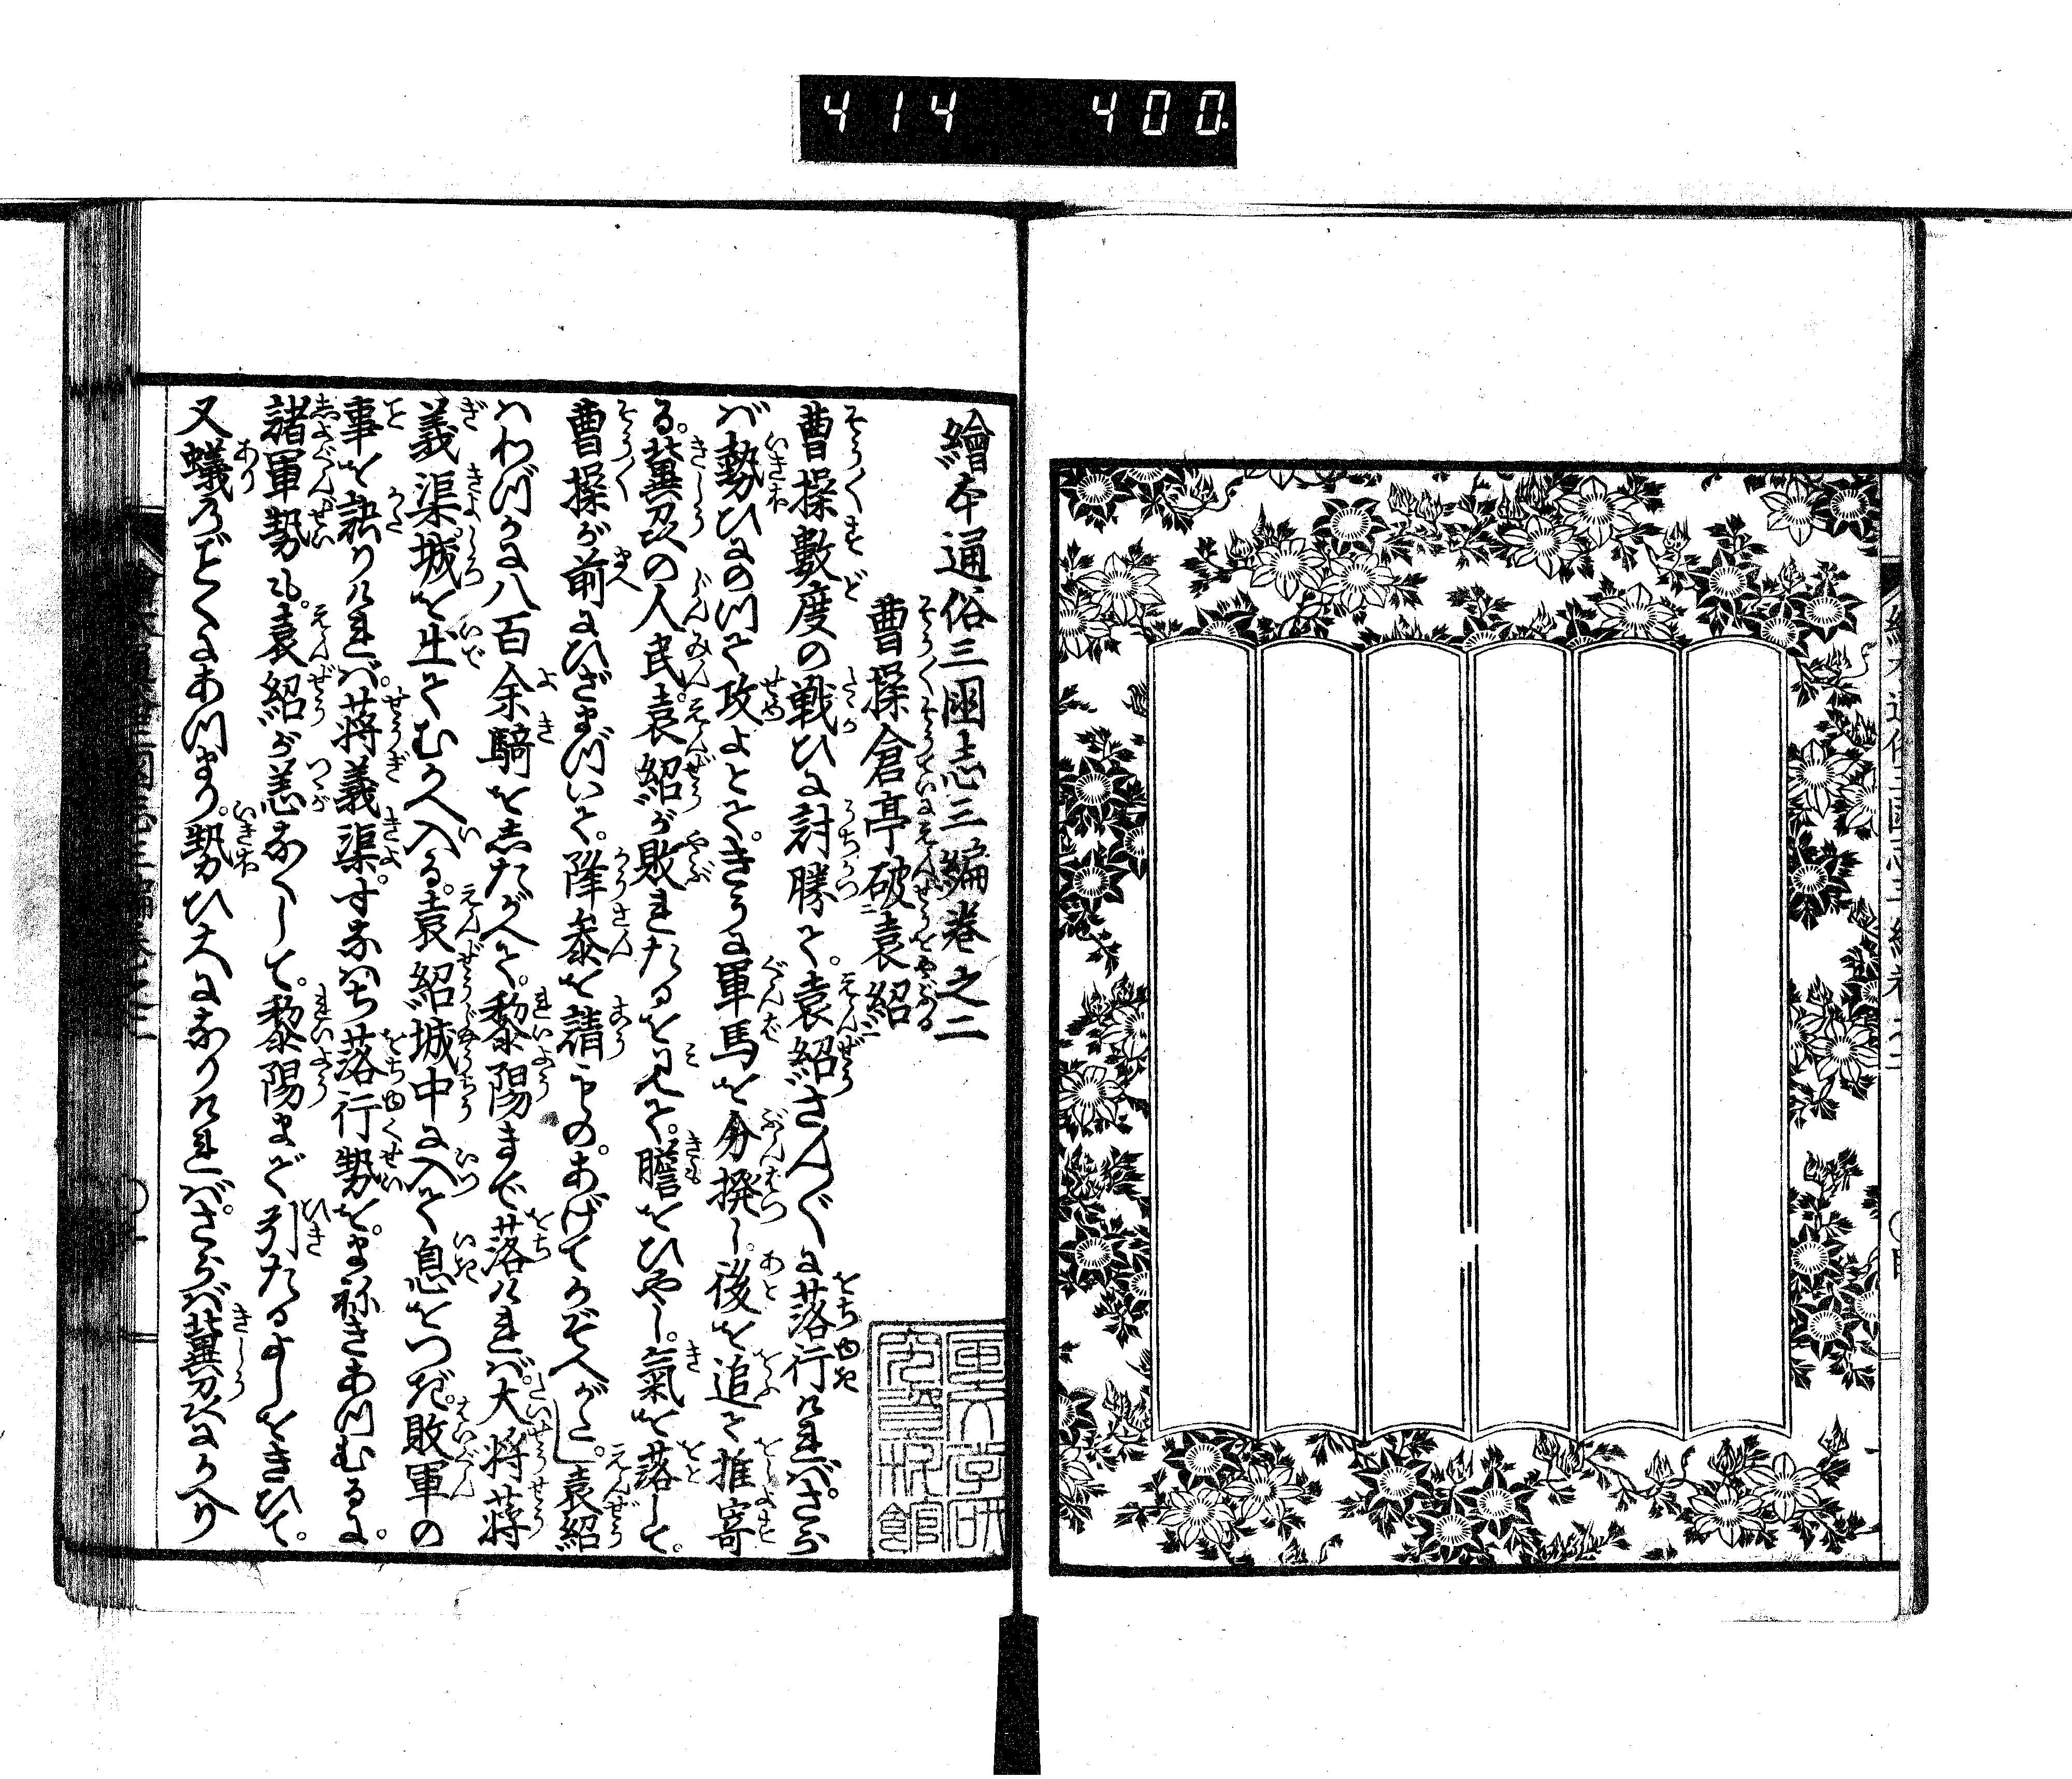 414 400.
繪本通俗三國志三編巻之二
曹操倉亭破袁紹
曹操數度の戦ひに討勝て。袁紹さん〴〵に落行ければ。さら
ば勢ひにのつて攻よとて。きうに軍馬を分撥し。後を追て推寄
る。冀州の人民。袁紹が敗れたるを見て。膽をひやし。氣を落して。
曹操が前にひざまづいて。降参を請もの。あげてかぞへがたし。袁紹
はわづかに八百余騎をしたがへて。黎陽まで落ければ。大将蒋
義渠。城を出てむかへ入る。袁紹城中に入て息をつぎ。敗軍の
事を訣りければ。蒋義渠。すなはち落行勢を。まねきあつむるに。
諸軍勢も。袁紹が恙なくして。黎陽まで引たるよしをきひて。
又蟻のごとくにあつまり。勢ひ大になりければ。さらば冀州にかへり